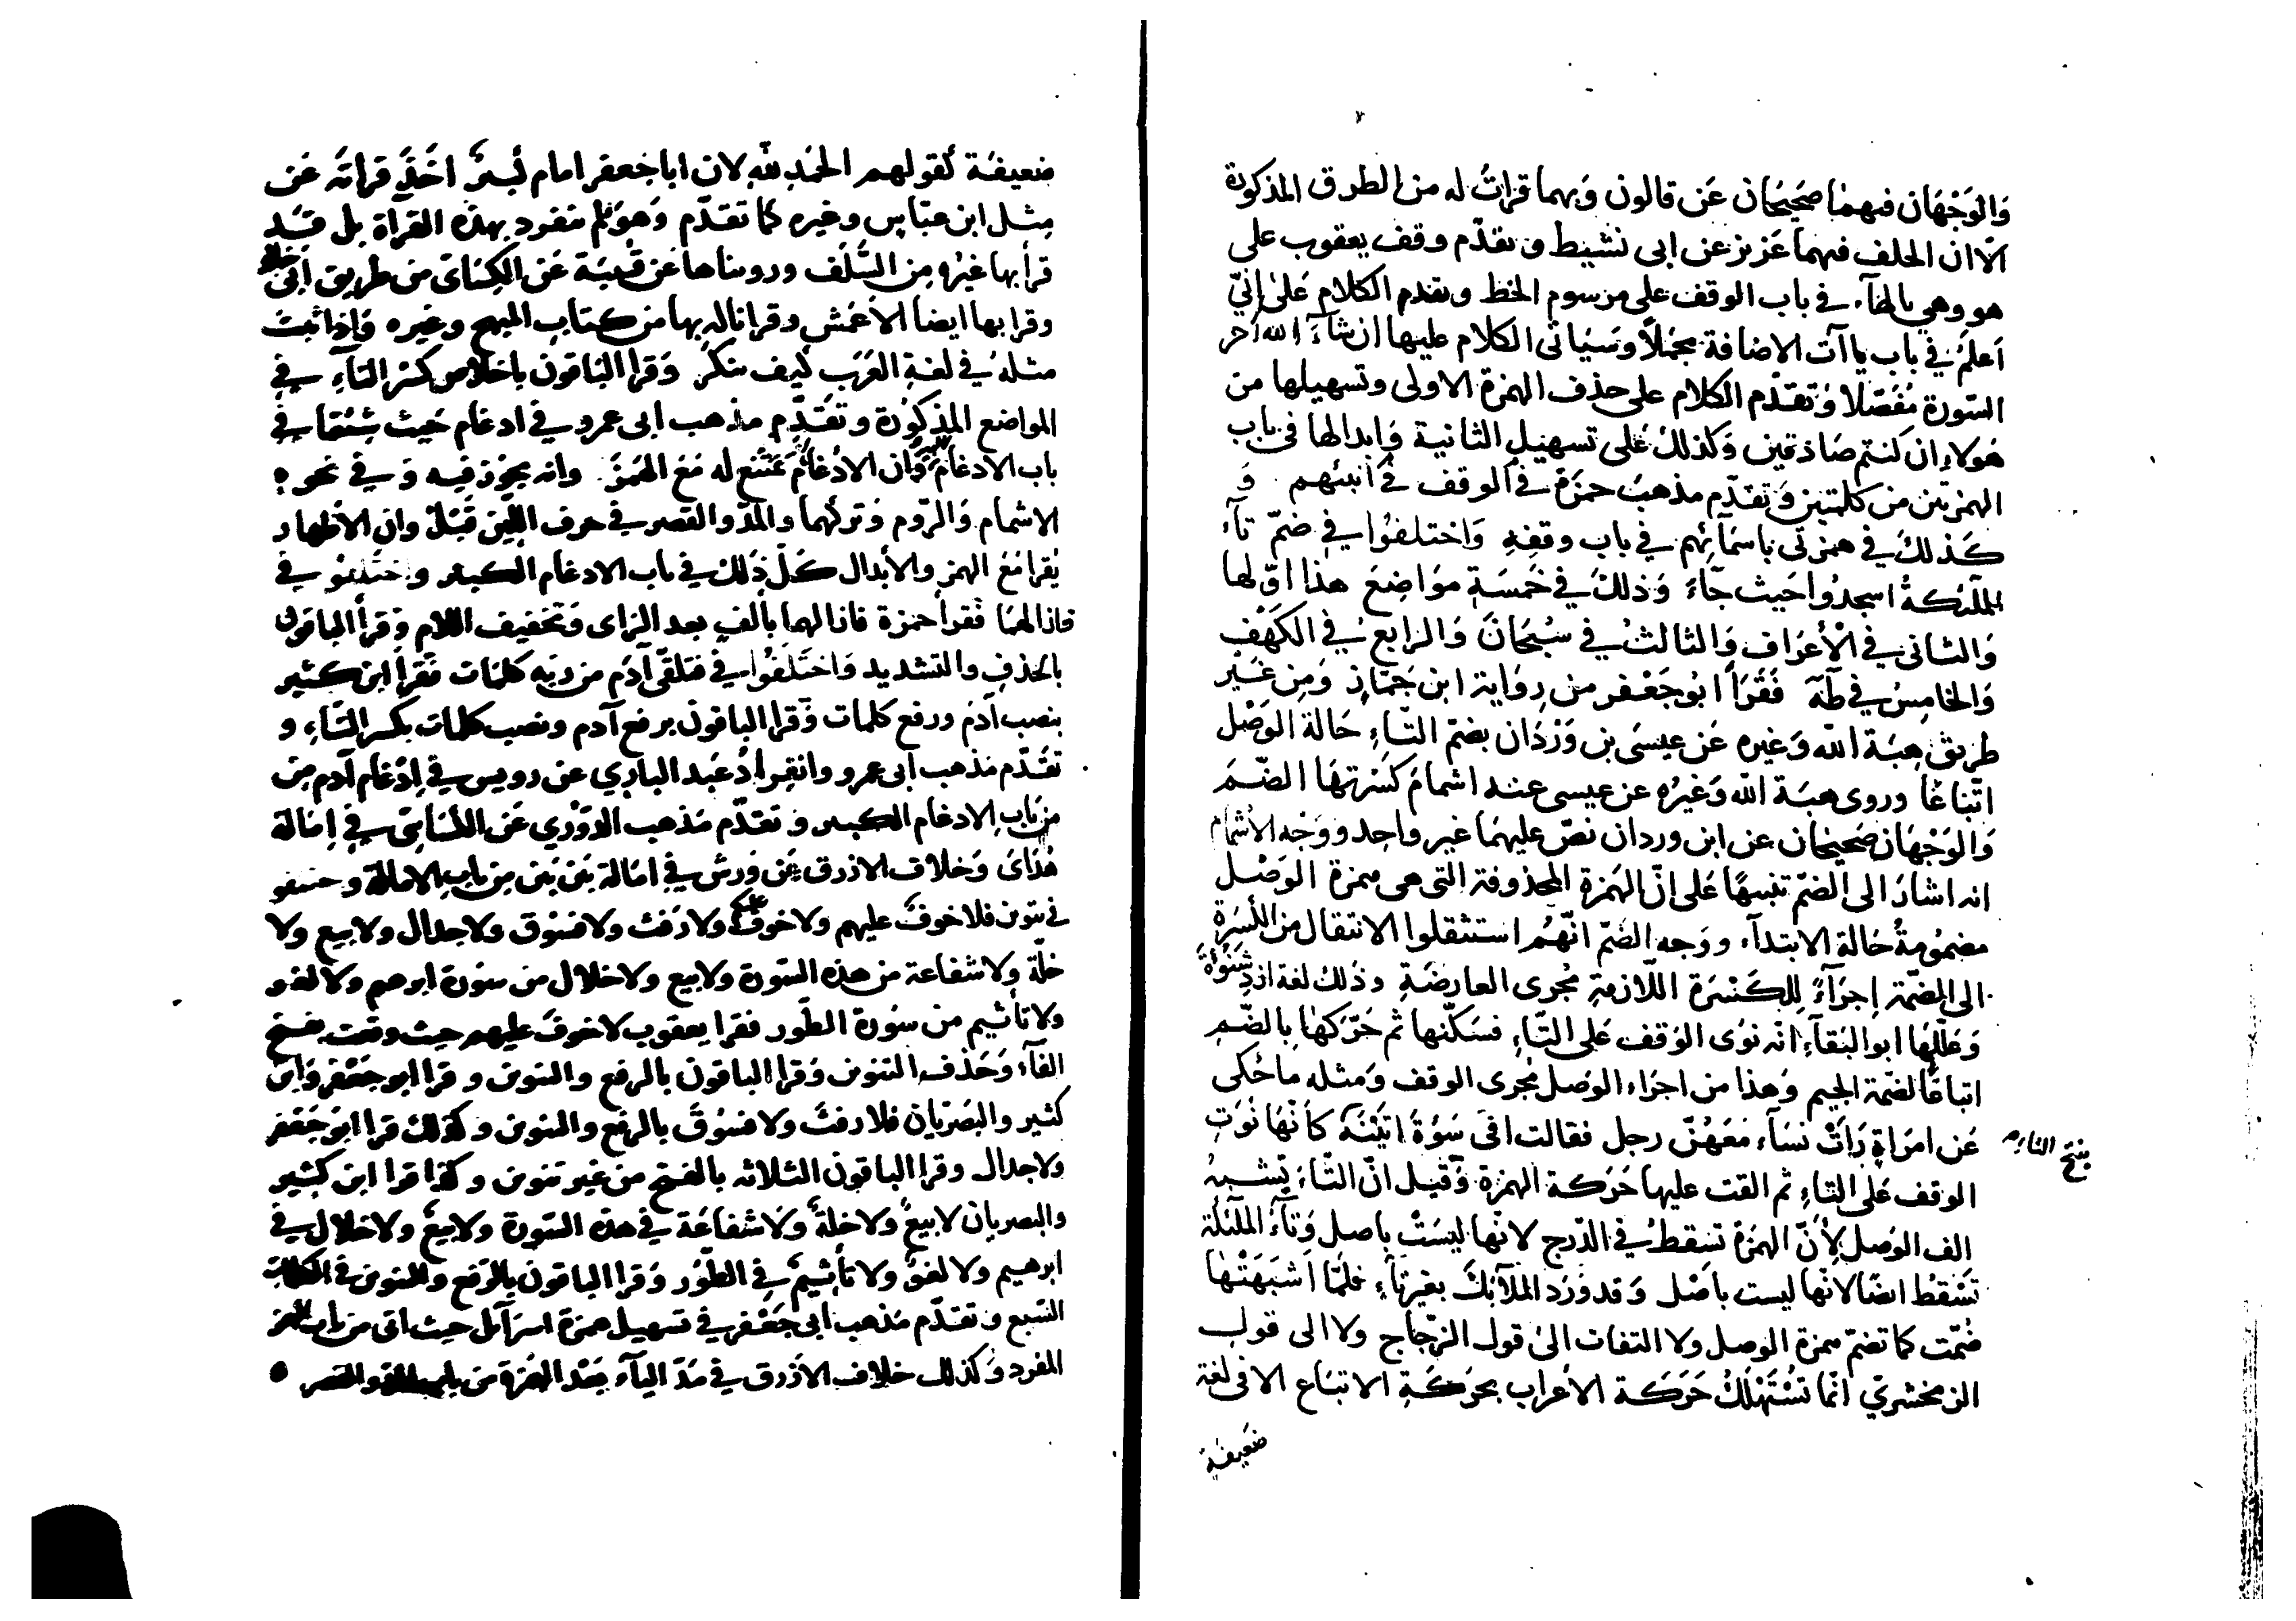 والوجهان فيهما صحيحان عن قالون وبهما قرات له من الطرق المذكورة
الا ان الخلف فيهما عزيز عن ابى نشيط وتقدم وقف يعقوب على
هو وهي بالهاء في باب الوقف على مرسوم الخط وتقدم الكلام على انيّ
اعلم في باب ياآت الاضافة مجملا وسياتى الكلام عليها ان شاء الله آخر
السورة مفصلا وتقدم الكلام على حذف الهمزة الاولى وتسهيلها من
هولاء ان كنتم صادقين وكذلك على تسهيل الثانية وابدالها في باب
الهمزتين من كلمتين وتقدم مذهب حمزة في الوقف في انبئهم و
كذلك في همزتى باسمائهم في باب وقفه واختلفوا في ضم تاء
للملئكة اسجدوا حيث جاء وذلك في خمسة مواضع هذا اولها
والثانى في الأعراف والثالث في سبحان والرابع في الكهف
والخامس في طه فقرأ ابو جعفر من رواية ابن جماز ومن غير
طريق هبة الله وغيره عن عيسى بن وردان بضم التاء حالة الوصل
اتباعا وروى هبة الله وغيره عن عيسى عنه اشمام كسرتها الضم
والوجهان صحيحان عن ابن وردان نص عليهما غير واحد ووجه الاشمام
انه اشار الى الضم تنبيها على ان الهمزة المحذوفة التى هى همزة الوصل
مضمومة حالة الابتداء ووجه الضم انهم استثقلوا الانتقال من الكسرة
الى الضمة إجراءً للكسرة اللازمة مجرى العارضة وذلك لغة ازد شنوءة
وعللها ابو البقاء انه نوى الوقف على التاء فسكنها ثم حركها بالضم
اتباعا لضمة الجيم وهذا من اجراء الوصل مجرى الوقف ومثله ما حكى
عن امراة رات نساء معهن رجل فقالت افى سوءة انتنه كأنها نوت
بفتح التاء
الوقف على التاء ثم القت عليها حركة الهمزة وقيل ان التاء تشبه
الف الوصل لأن الهمزة تسقط في الدرج لانها ليست باصل وتاء الملئكة
تسقط ايضا لانها ليست باصل وقد ورد الملائك بغير تاء فلما اشبهتها
ضمت كما تضم همزة الوصل ولا التفات الى قول الزجاج ولا الى قول
الزمخشري انما تستهلك حركة الأعراب بحركة الاتباع الا فى لغة
ضعيفة
ضعيفة كقولهم الحمد لله لان ابا جعفر امام كبير اخذ قراته عن
مثل ابن عباس وغيره كما تقدم وهو لم ينفرد بهذه القراة بل قد
قرأ بها غيره من السلف ورويناها عن قتيبة عن الكسائى من طريق ابى خالد
وقرا بها ايضا الأعمش وقرانا له بها من كتاب المبهج وغيره واذا ثبت
مثله في لغة العرب كيف ينكر وقرا الباقون باخلاص كسر التاء في
المواضع المذكورة وتقدم مذهب ابى عمرو في ادغام حيث شئتما في
باب الادغام الكبير وان الادغام يمتنع له مع الهمز وانه يجوز فيه وفي نحوه
الاشمام والروم وتركهما والمد والقصر في حرف اللين قبل وان الاظهار
يقرا مع الهمز والأبدال كل ذلك في باب الادغام الكبير واختلفوا في
فازالهما فقرأ حمزة فازالهما بألف بعد الزاى وتخفيف اللام وقرأ الباقون
بالحذف والتشديد واختلفوا في فتلقى آدم من ربه كلمات فقرأ ابن كثير
بنصب آدم ورفع كلمات وقرا الباقون برفع آدم ونصب كلمات بكسر التاء و
تقدم مذهب ابى عمرو وانفراد عبد الباري عن رويس في إدغام آدم من
من باب الادغام الكبير وتقدم مذهب الدوري عن الكسائى في إمالة
هداى وخلاف الازرق عن ورش في امالة بين بين من باب الامالة واختلفو
في تنوين فلا خوف عليهم ولا خوف عليكم ولا رفث ولا فسوق ولا جدال ولا بيع ولا
خلة ولا شفاعة من هذه السورة ولا بيع ولا خلال من سورة ابرهيم ولا لغو
ولا تأثيم من سورة الطور فقرا يعقوب لا خوف عليهم حيث وقعت بفتح
الفاء وحذف التنوين وقرا الباقون بالرفع والتنوين وقرا ابو جعفر وابن
كثير والبصريان فلا رفث ولا فسوق بالرفع والتنوين وكذلك قرا ابو جعفر
ولا جدال وقرا الباقون الثلاثه بالفتح من غير تنوين وكذا قرا ابن كثير
والبصريان لا بيع ولا خلة ولا شفاعة في هذه السورة ولا بيع ولا خلال في
ابرهيم ولا لغو ولا تأثيم في الطور وقرا الباقون بالرفع والتنوين في الكلمات
السبع وتقدم مذهب ابى جعفر في تسهيل همزة اسرآئل حيث اتى من باب الهمز
المفرد وكذلك خلاف الازرق في مد الياء بعد الهمزة من باب المد والقصر